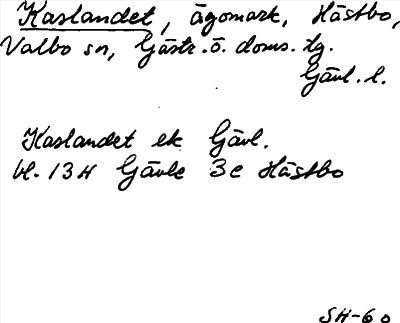 Kaslandet, ägomark, Hästbo,
Valbo sn, Gästr. ö. doms. tg.
Gävl. l.
Kaslandet ek Gävl.
bl. 13H Gävle 3c Hästbo
SH-60